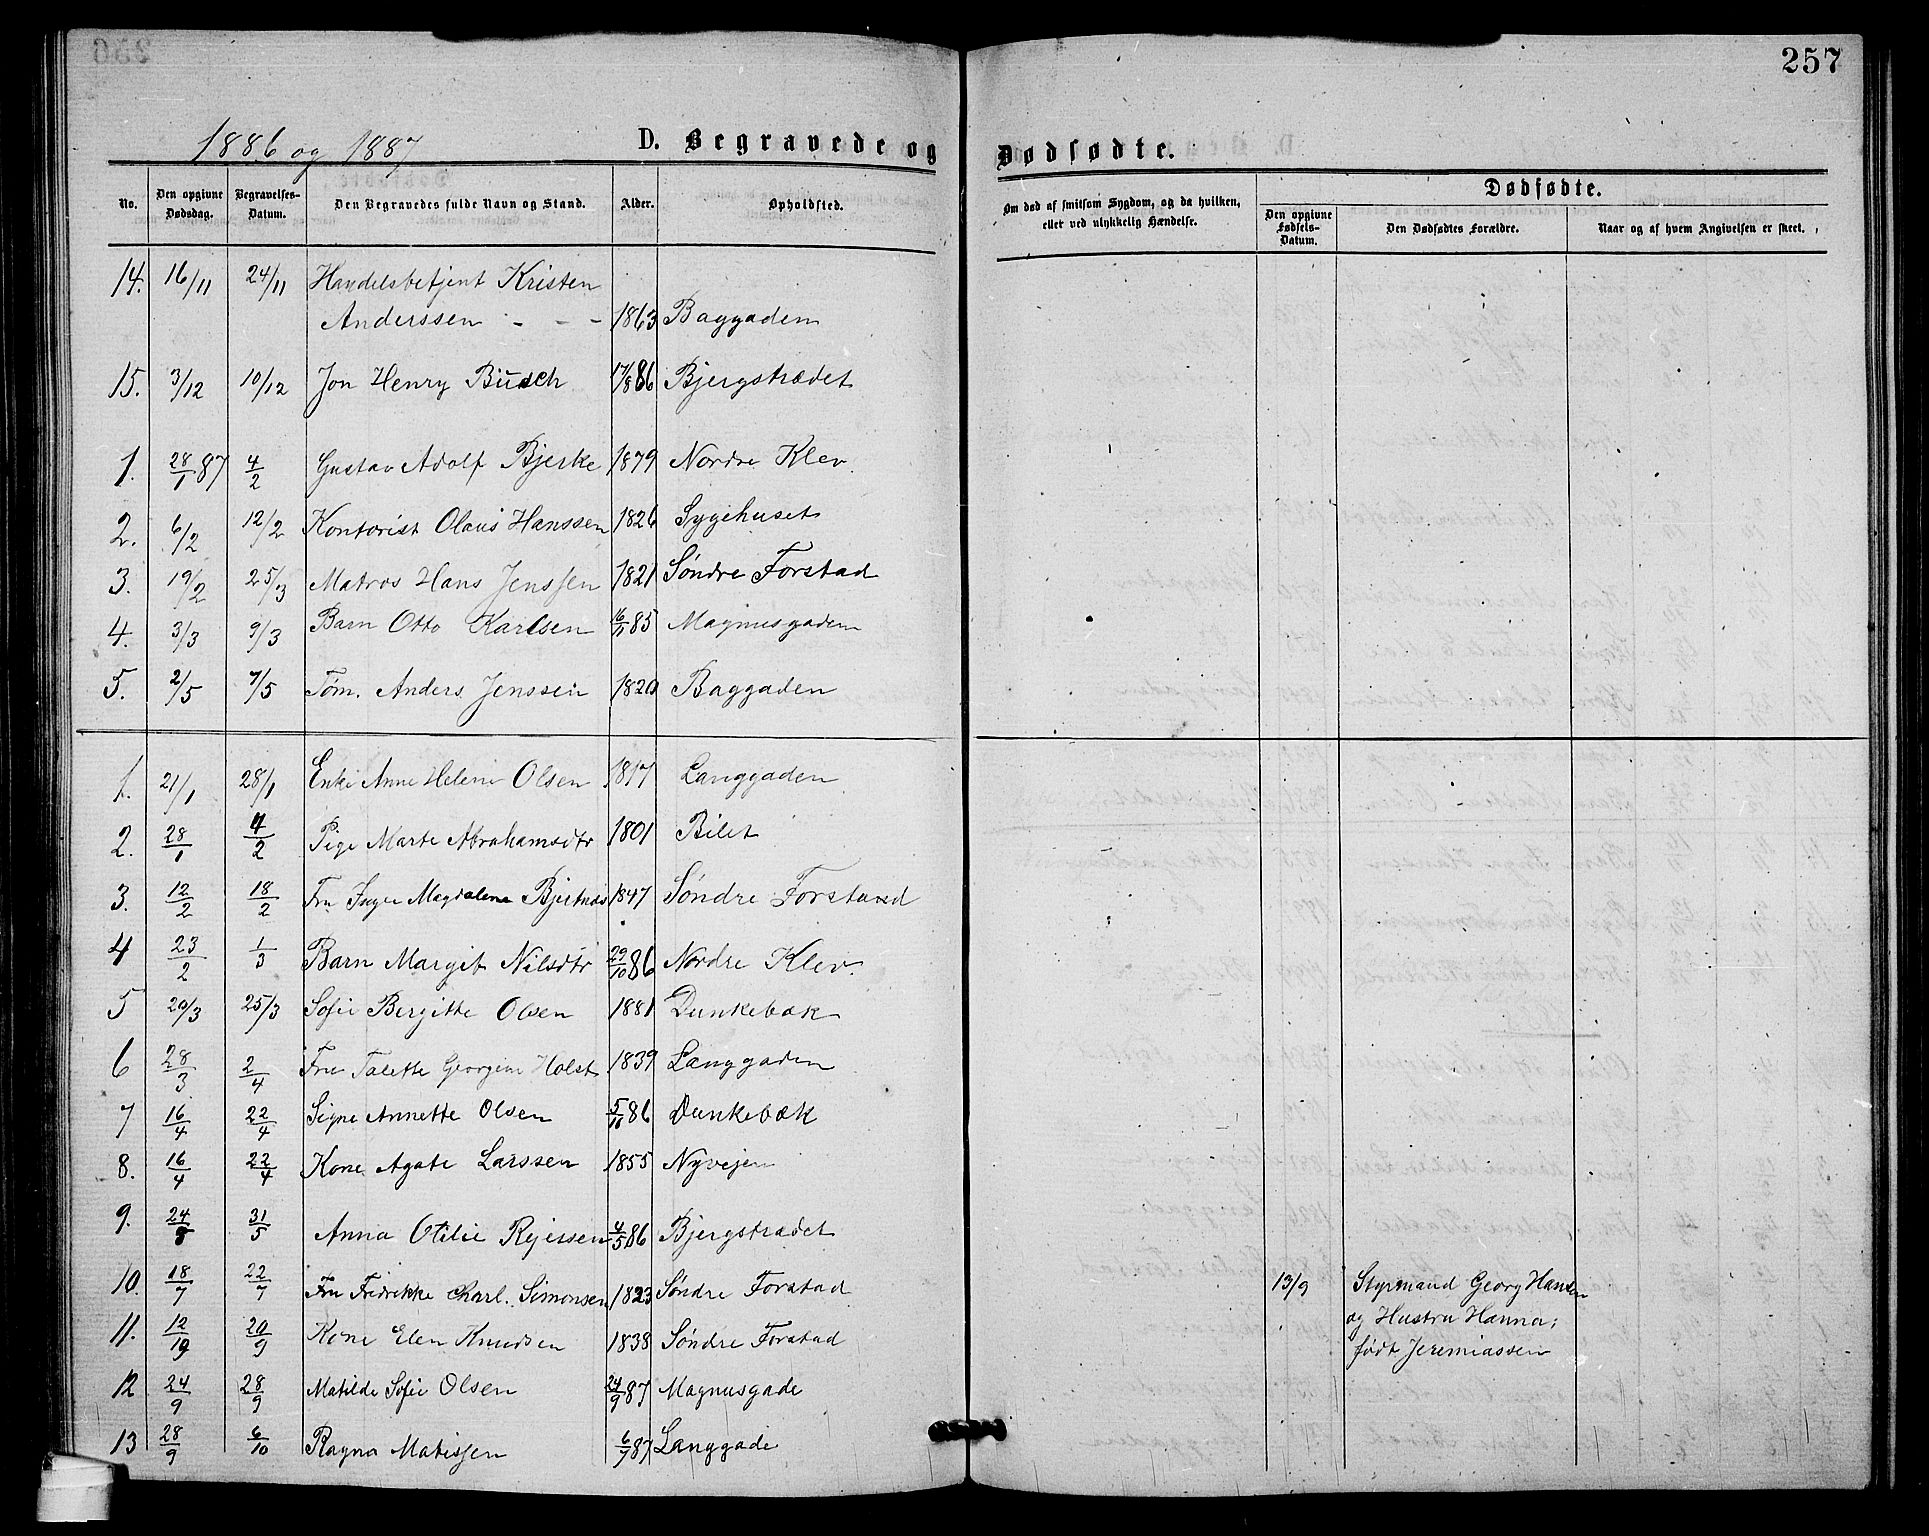 257
1886 og 1887
D. Begravede og Dødfødte.
No.
Den opgivne Dødsdag.
Begravelses-Datum.
Den Begravedes fulde Navn og Stand.
Alder.
Opholdsted.
Om død af smitsom Sygdom, og da hvilken, eller ved ulykkelig Hændelse.
Dødfødte.
Den opgivne Fødsels-Datum.
Den Dødfødtes Forældre.
Naar og af hvem Angivelsen er skeet.
14. 16/11 24/11 Handelsbetjent Kristen
Anderssen - - - 1863 Baggaden
15. 3/12 10/12 Jon Henry Büsch 17/8 86 Bjergstrædet
1. 28/1 87 4/2 Gustav Adolf Bjerke 1879 Nordre Klev.
2. 6/2 12/2 Kontorist Olaus Hanssen 1826 Sygehuset
3. 19/2 25/3 Matros Hans Jenssen 1821 Søndre Forstad
4. 3/3 9/3 Barn Otto Karlsen 16/11 85 Magnusgaden
5. 2/5 7/5 Tøm. Anders Jenssen 1820 Baggaden
1. 21/1 28/1 Enke Anne Helene Olsen 1817 Langgaden
2. 28/1 4/2 Pige Marte Abrahamsdtr 1801 Bilet
3. 12/2 18/2 Fru Inger Magdalene Bjertnæs 1847 Søndre Forstaed
4 23/2 1/3 Barn Margit Nilsdtr 29/10 86 Nordre Klev.
5 20/3 25/3 Sofie Bergitte Olsen 1881 Dunkebæk
6 28/3 2/4 Fru Talette Georgine Holst 1839 Langgaden
7 16/4 22/4 Signe Annette Olsen 5/11 86 Dunkebæk
8. 16/4 22/4 Kone Agate Larssen 1855 Nyvejen
9. 24/5 31/5 Anna Otilie Rejerssen 4/5 86 Bjergstrædet
10. 18/7 22/7 Fru Fredrikke Charl. Simonsen 1823 Søndre Forstad
13/9 Styrmand Georg Hansen
11. 12/9 20/9 Kone Elen Knudsen 1838 Søndre Forstad
og Hustru Hanna;
født Jeremiassen
12 24/9 28/9 Matilde Sofie Olsen 24/9 87 Magnusgade
13 28/9 6/10 Ragna Matissen 6/7 87 Langgade